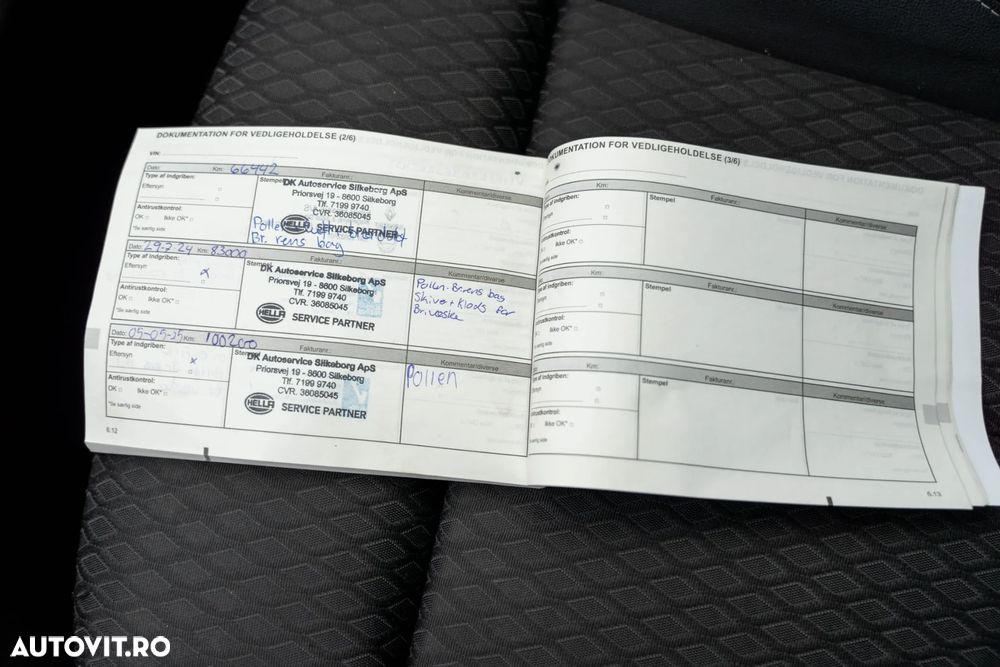 DOKUMENTATION FOR VEDLIGEHOLDELSE (2/6)
VIN:
Dato: Km: 66442 Fakturanr.:
Type af indgriben: Stempel Kommentar/diverse
Eftersyn
Antirustkontrol:
OK Ikke OK*
*Se særlig side
DK Autoservice Silkeborg ApS
Priorsvej 19 - 8600 Silkeborg
Tlf. 7199 9740
CVR. 36085045
HELLA SERVICE PARTNER
Pollen
Br. rens bag
Dato: 29-2 24 Km: 83000 Fakturanr.:
Type af indgriben: Stempel Kommentar/diverse
Eftersyn x
Antirustkontrol:
OK Ikke OK*
*Se særlig side
DK Autoservice Silkeborg ApS
Priorsvej 19 - 8600 Silkeborg
Tlf. 7199 9740
CVR. 36085045
HELLA SERVICE PARTNER
Pollen. Br.rens bag
Skiver + Klods for
Br. væske
Dato: 05-05-25 Km: 100200 Fakturanr.:
Type af indgriben: Kommentar/diverse
Eftersyn x
Antirustkontrol:
OK Ikke OK*
*Se særlig side
DK Autoservice Silkeborg ApS
Priorsvej 19 - 8600 Silkeborg
Tlf. 7199 9740
CVR. 36085045
HELLA SERVICE PARTNER
Pollen
6.12
DOKUMENTATION FOR VEDLIGEHOLDELSE (3/6)
Km: Fakturanr.:
Type af indgriben: Stempel Kommentar/diverse
Eftersyn
Antirustkontrol:
Ikke OK*
særlig side
Km: Fakturanr.:
af indgriben: Stempel Kommentar/diverse
Eftersyn
Antirustkontrol:
Ikke OK*
særlig side
Km: Fakturanr.:
indgriben: Stempel Kommentar/diverse
Eftersyn
Antirustkontrol:
Ikke OK*
særlig side
6.13
AUTOVIT.RO